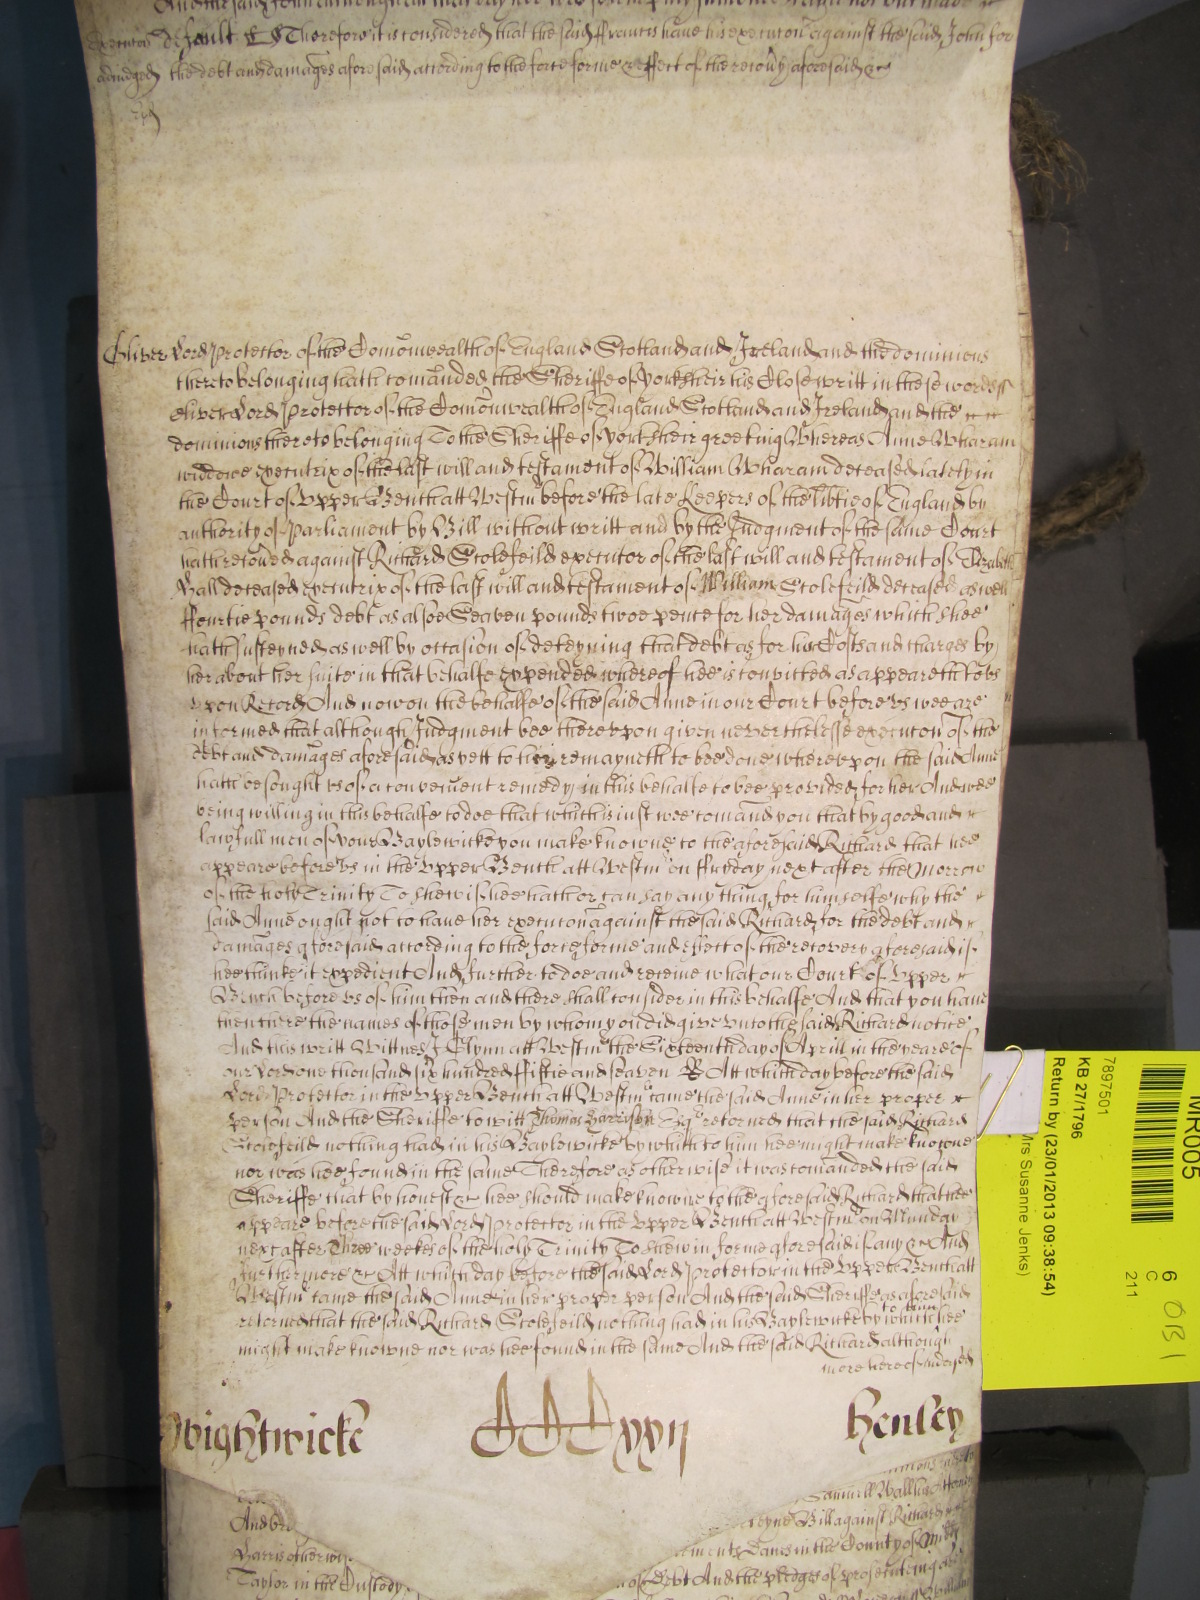 Execution default &c Therefore it is considered that the said Ffrancis have his execucon against the said John for
adiudged the debt and damages aforesaid according to the force forme & effect of the recovy aforesaid &c
Oliver Lord Protector of the Comonwealth of England Scotland and Ireland and the dominions
thereto belonging hath comanded the Sheriffe of Yorksheir his Close writt in these words ss
Oliver Lord Protector of the Comonwealth of England Scotland and Ireland and the
dominions thereto belonging To the Sheriffe of Yorksheir greeting Whereas Anne Wharam
widdowe executrix of the last will and testament of William Wharam deceased lately in
the Court of Upper Bench att Westm before the late Keepers of the libtie of England by
authority of Parliament by Bill without writt and by the Judgment of the same Court
hath recoved against Richard Scolefeild executor of the last will and testament of Elizabeth
Hall deceased executrix of the last will and testament of William Scolefeild deceased as well
Ffourtie pounds debt as alsoe Seaven pounds twoe pence for her damages which shee
hath susteyned as well by occasion of deteyning that debt as for her Costs and charges by
her about her suite in that behalfe expended whereof hee is convicted as appeareth to us
upon Record And now on the behalfe of the said Anne in our Court before us wee are
informed that although Judgment bee thereupon given neverthelesse execucon of the
debt and damages aforesaid as yett to her remayneth to bee done whereupon the said Anne
hath besought us of a convenient remedy in this behalfe to bee provided for her And wee
being willing in this behalfe to doe that which is just wee comand you that by good and
lawfull men of your Baylewicke you make knowne to the aforesaid Richard that hee
appeare before us in the Upper Bench att Westm on Ffryday next after the Morrow
of the holy Trinity To shew if hee hath or can say any thing for himselfe why the
said Anne ought not to have her execucon against the said Richard for the debt and
damages aforesaid according to the force forme and effect of the recovery aforesaid if
hee thinke it expedient And further to doe and receive what our Court of Upper
Bench before us of him then and there shall consider in this behalfe And that you have
then there the names of those men by whom you did give unto the said Richard notice
And this writt Wittnes J Glynn att Westm the Sixteenth day of Aprill in the yeare of
our Lord one thousand six hundred Fiftie and seaven att which day before the said
Lord Protector in the Upper Bench att Westm came the said Anne in her proper
person And the Sheriffe to witt Thomas Harrison Esqr retorned that the said Richard
Scolefeild nothing had in his Baylewicke by which to him hee might make knowne
nor was hee found in the same Therefore as otherwise it was comanded the said
Sheriffe that by honest &c hee should make knowne to the aforesaid Richard that hee
appeare before the said Lord Protector in the Upper Bench att Westm on Munday
next after Three weekes of the holy Trinity To shew in forme aforesaid if any &c And
furthermore &c Att which day before the said Lord Protector in the Upper Bench att
Westm came the said Anne in her proper person And the said Sheriffe as aforesaid
retorned that the said Richard Scolefeild nothing had in his Baylewicke by which to him hee
might make knowne nor was hee found in the same And the said Richard although
more hereof indorsed
Wightwicke
Henley
Samuell Wallis
Bill against Richard
Harris otherwise
Dancs in the County of Midd
Taylor in the Custody
of debt And the pledges of prosecuteing
MR005
7897501
KB 27/1796
Return by (23/01/2013 09:38:54)
Mrs Susanne Jenks)
6
C
211
OB 1